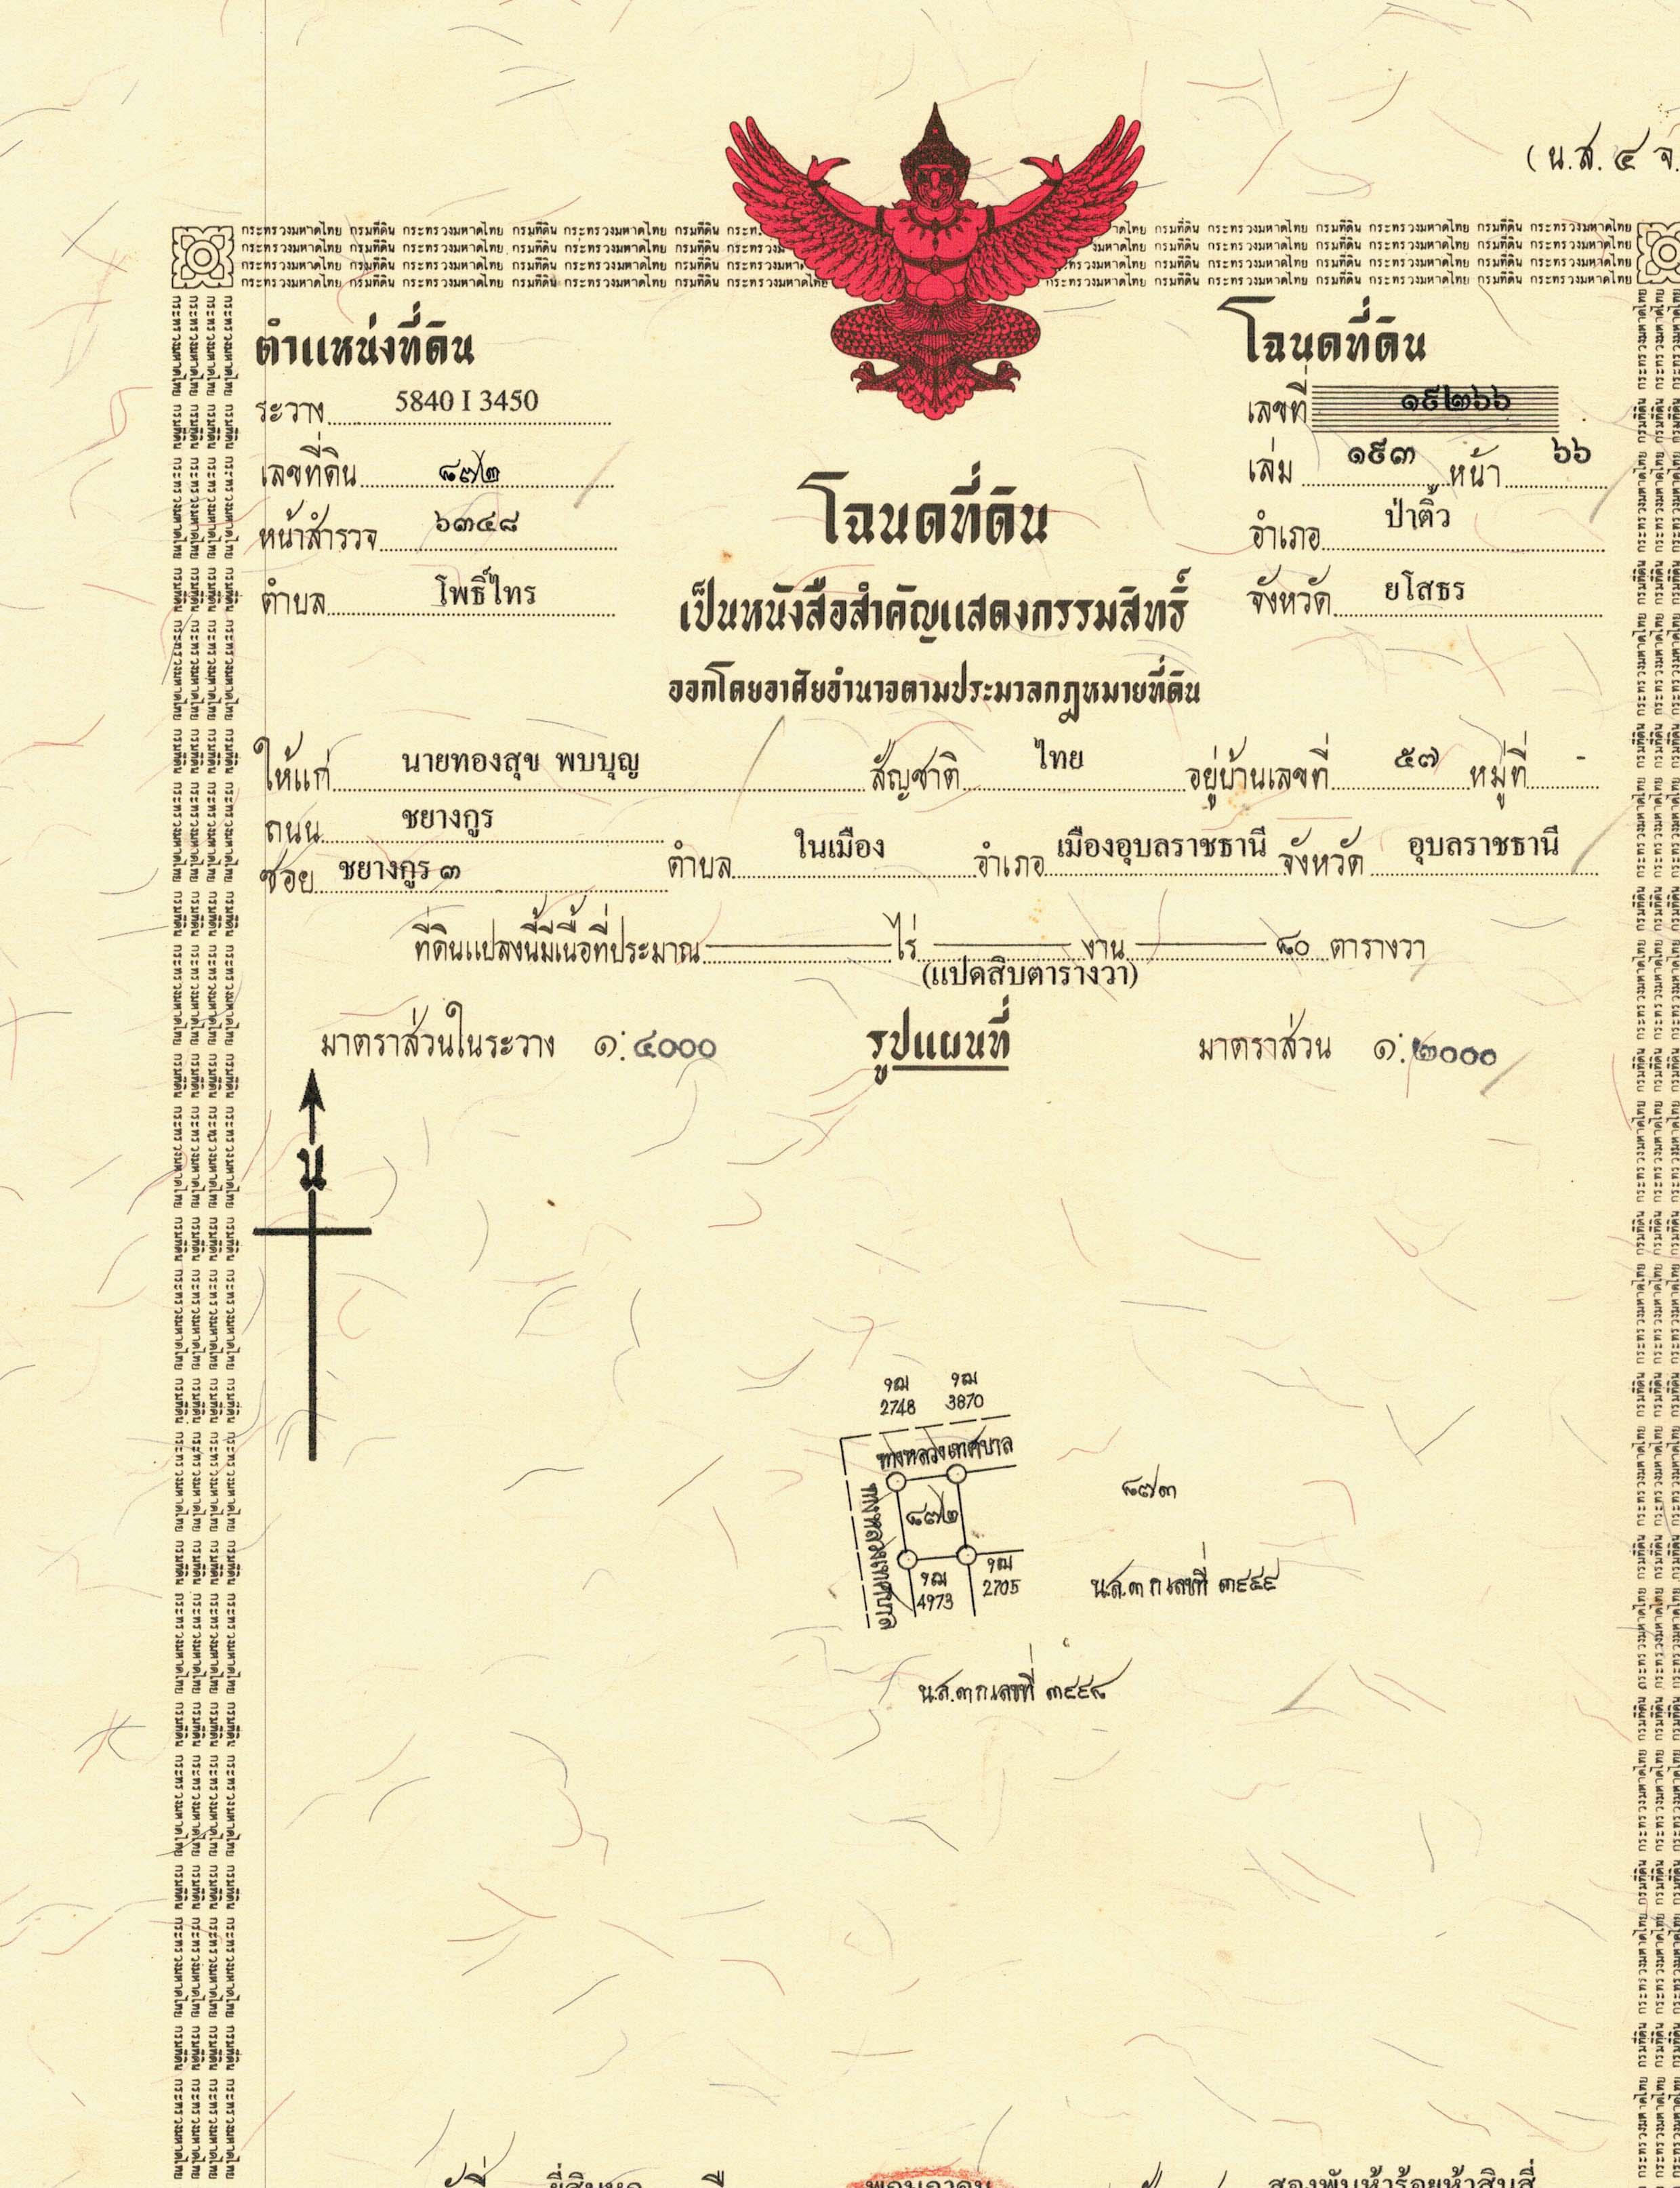 (น.ส. ๔ จ.
กระทรวงมหาดไทย กรมที่ดิน กระทรวงมหาดไทย กรมที่ดิน กระทรวงมหาดไทย กรมที่ดิน
ตำแหน่งที่ดิน
ระวาง 5840 I 3450
เลขที่ดิน ๘๗๒
หน้าสำรวจ ๖๓๔๘
ตำบล โพธิ์ไทร
โฉนดที่ดิน
เลขที่ ๑๙๒๖๖
เล่ม ๑๙๓ หน้า ๖๖
อำเภอ ป่าติ้ว
จังหวัด ยโสธร
โฉนดที่ดิน
เป็นหนังสือสำคัญแสดงกรรมสิทธิ์
ออกโดยอาศัยอำนาจตามประมวลกฎหมายที่ดิน
ให้แก่ นายทองสุข พบบุญ สัญชาติ ไทย อยู่บ้านเลขที่ ๕๗ หมู่ที่ -
ถนน ชยางกูร
ซอย ชยางกูร ๓ ตำบล ในเมือง อำเภอ เมืองอุบลราชธานี จังหวัด อุบลราชธานี
ที่ดินแปลงนี้มีเนื้อที่ประมาณ ไร่ งาน ๘๐ ตารางวา
(แปดสิบตารางวา)
มาตราส่วนในระวาง ๑:๔๐๐๐ รูปแผนที่ มาตราส่วน ๑:๒๐๐๐
น
2748 3870
ทางหลวงเทศบาล
๘๗๓
๘๗๒
ทางหลวงเทศบาล
2705
4973
น.ส.๓ ก เลขที่ ๓๙๙๙
น.ส.๓ ก เลขที่ ๓๙๙๘
สองพันห้าร้อยห้าสิบสี่